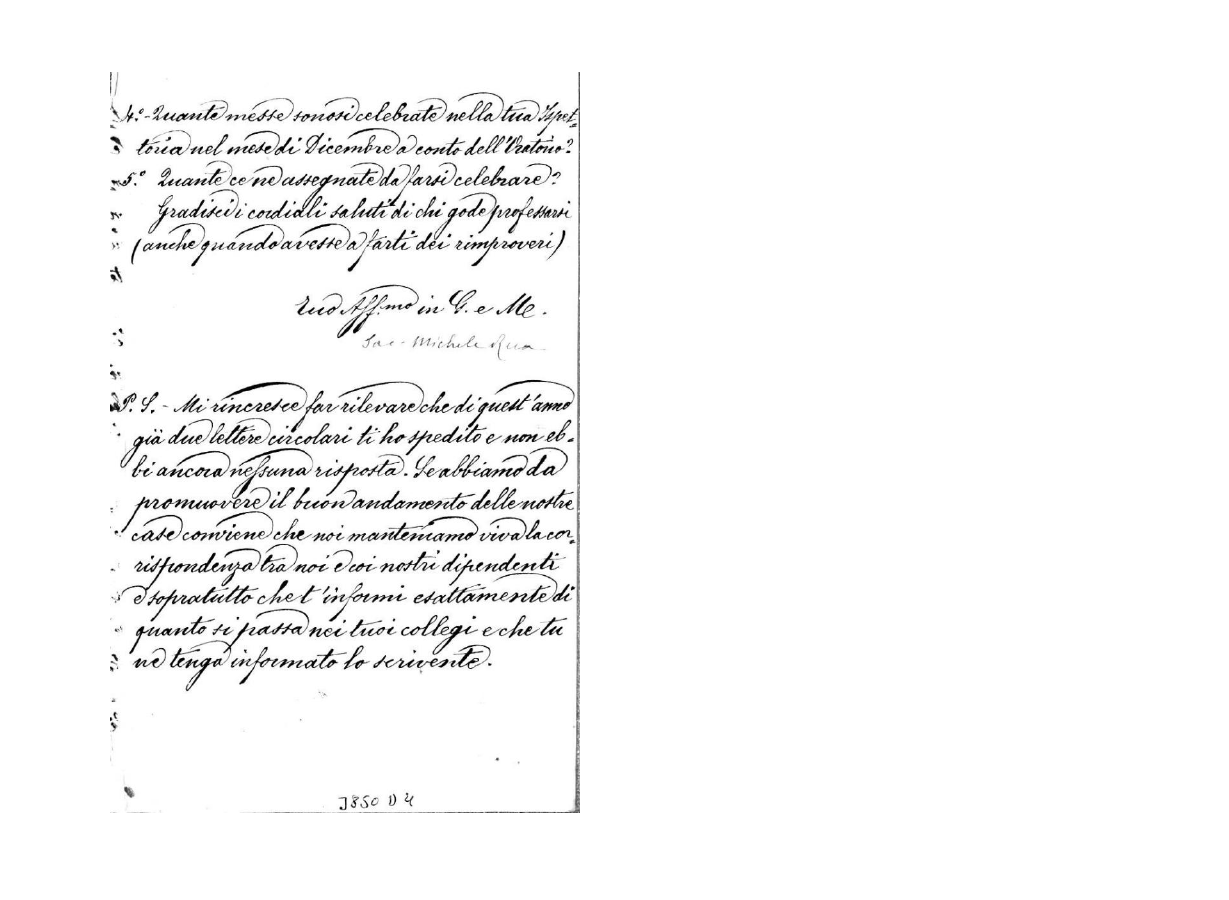 4.° - Quante messe sonosi celebrate nella tua Ispet-
toria nel mese di Dicembre a conto dell'Oratorio?
5.° Quante ce ne assegnate da farsi celebrare?
Gradisci i cordiali saluti di chi gode professarsi
(anche quando avesse a farti dei rimproveri)
Tuo Aff.mo in G. e M.
Sac. Michele Rua
P. S. - Mi rincresce far rilevare che di quest'anno
già due lettere circolari ti ho spedito e non eb-
bi ancora nessuna risposta. Se abbiamo da
promuovere il buon andamento delle nostre
case conviene che noi manteniamo viva la cor-
rispondenza tra noi e coi nostri dipendenti
e sopratutto che t'informi esattamente di
quanto si passa nei tuoi collegi e che tu
ne tenga informato lo scrivente.
J850 D4